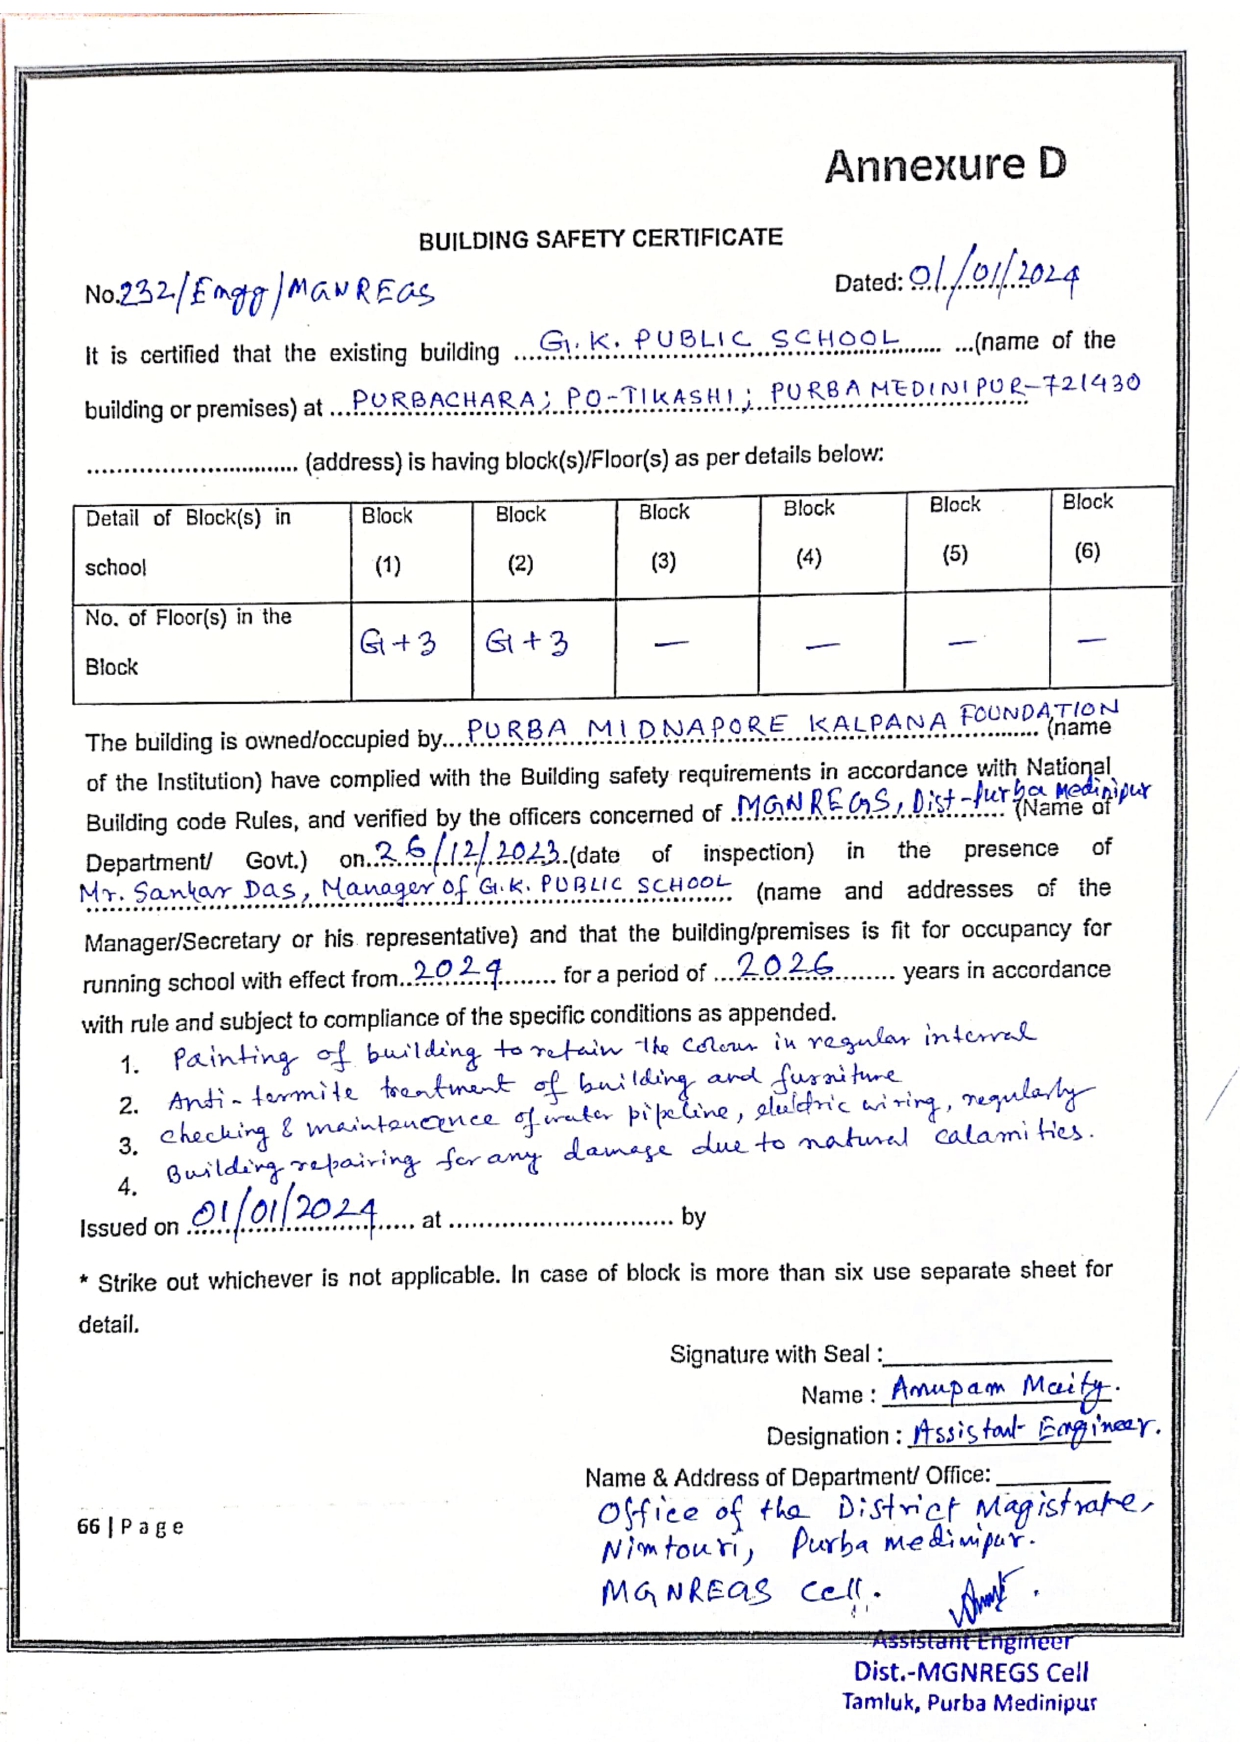 Annexure D
BUILDING SAFETY CERTIFICATE
No.232/Engg/MGNREGS Dated: 01/01/2024
It is certified that the existing building ....G.K. PUBLIC SCHOOL....... ...(name of the
building or premises) at ...PURBACHARA; PO-TIKASHI; PURBA MEDINIPUR-721430
.............................. (address) is having block(s)/Floor(s) as per details below:
Detail of Block(s) in school Block (1) Block (2) Block (3) Block (4) Block (5) Block (6)
No. of Floor(s) in the Block G+3 G+3 — — — —
The building is owned/occupied by....PURBA MIDNAPORE KALPANA FOUNDATION (name
of the Institution) have complied with the Building safety requirements in accordance with National
Building code Rules, and verified by the officers concerned of MGNREGS, Dist-Purba Medinipur (Name of
Department/ Govt.) on..26/12/2023.(date of inspection) in the presence of
Mr. Sankar Das, Manager of G.K. PUBLIC SCHOOL (name and addresses of the
Manager/Secretary or his representative) and that the building/premises is fit for occupancy for
running school with effect from..2024........ for a period of ...2026......... years in accordance
with rule and subject to compliance of the specific conditions as appended.
1. Painting of building to retain the colour in regular interval
2. Anti-termite treatment of building and furniture
3. checking & maintenance of water pipeline, electric wiring, regularly
4. Building repairing for any damage due to natural calamities.
Issued on 01/01/2024..... at ................................ by
* Strike out whichever is not applicable. In case of block is more than six use separate sheet for
detail.
Signature with Seal :
Name : Anupam Maity.
Designation : Assistant Engineer.
Name & Address of Department/ Office:
Office of the District Magistrate,
66 | Page
Nimtouri, Purba Medinipur.
MGNREGS Cell.
Assistant Engineer
Dist.-MGNREGS Cell
Tamluk, Purba Medinipur